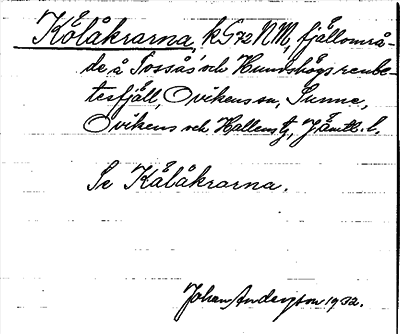 Kölåkrarna, kG72NM, fjällområ-
de å Sossås' och Hundshögs renbe-
tesfjäll, Ovikens sn, Sunne,
Ovikens och Hallens tg, Jämtl. l.
Se Kålåkrarna.
Johan Anderzon 1932.